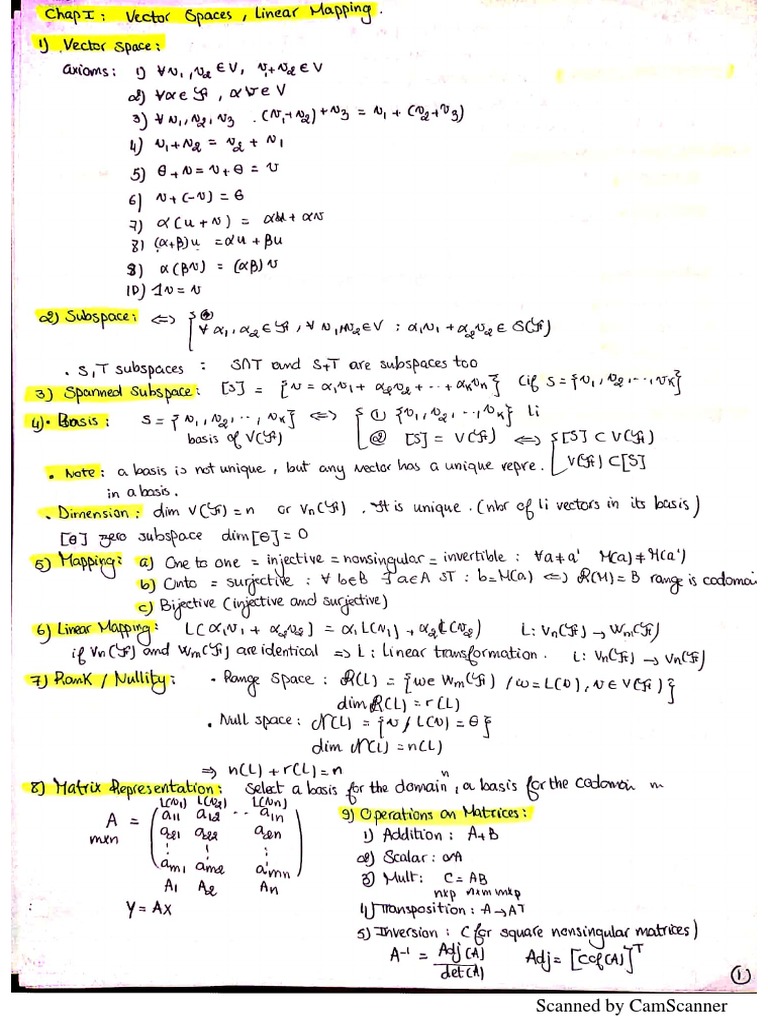 Chap I: Vector Spaces, Linear Mapping.
1) Vector Space:
axioms: 1) ∀ v1, v2 ∈ V, v1+v2 ∈ V
2) ∀α ∈ F, αv ∈ V
3) ∀ v1, v2, v3 . (v1+v2)+v3 = v1+(v2+v3)
4) v1+v2 = v2+v1
5) θ+v = v+θ = v
6) v+(-v) = θ
7) α(u+v) = αu+αv
8) (α+β)u = αu+βu
9) α(βv) = (αβ)v
10) 1v = v
2) Subspace: <=> { S
∀ α1, α2 ∈ F, ∀ v1, v2 ∈ V : α1v1 + α2v2 ∈ S(F)
. S,T subspaces : S∩T and S+T are subspaces too
3) Spanned Subspace: [S] = {v = α1v1 + α2v2 + .. + αkvk} (if S = {v1, v2, .., vk}
4). Basis: S = {v1, v2, .., vk} <=> { ① {v1, v2, .., vk} Li
basis of V(F) ② [S] = V(F) <=> { [S] ⊂ V(F)
V(F) ⊂ [S]
. Note: a basis is not unique, but any vector has a unique repre.
in a basis.
. Dimension: dim V(F) = n or Vn(F). It is unique. (nbr of li vectors in its basis)
[θ] zero subspace dim[θ] = 0
5) Mapping: a) One to one = injective = nonsingular = invertible : ∀a≠a' M(a) ≠ M(a')
b) Onto = surjective : ∀ b∈B ∃ a∈A ST : b = M(a) <=> R(M) = B range is codomain
c) Bijective (injective and surjective)
6) Linear Mapping: L(α1v1 + α2v2) = α1L(v1) + α2L(v2) L: Vn(F) → Wm(F)
if Vn(F) and Wm(F) are identical => L: Linear transformation. L: Vn(F) → Vn(F)
7) Rank / Nullity: . Range Space : R(L) = {w∈ Wm(F) / w = L(v), v∈V(F)}
dim R(L) = r(L)
. Null space: N(L) = {v / L(v) = θ}
dim N(L) = n(L)
=> n(L) + r(L) = n
8) Matrix Representation: Select a basis for the domain n, a basis for the codomain m
L(v1) L(v2) L(vn)
A = ( a11 a12 .. a1n
mxn a21 a22 a2n
: : :
am1 am2 amn )
A1 A2 An
Y = AX
9) Operations on Matrices:
1) Addition : A+B
2) Scalar: αA
3) Mult : C = AB
nxp nxm mxp
4) Transposition : A → AT
5) Inversion : (for square nonsingular matrices)
A-1 = Adj(A) / det(A) Adj = [Cof(A)]T
1
Scanned by CamScanner